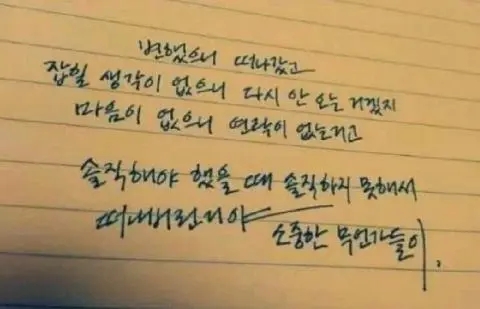 변했으니 떠나갔고
잡힐 생각이 없으니 다시 안 오는 거겠지
마음이 없으니 연락이 없는거고
솔직해야 했을 때 솔직하지 못해서
떠나버린거야
소중한 무언가들이.